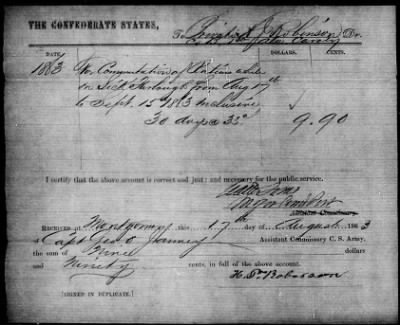 THE CONFEDERATE STATES,
To J Robinson Dr.
DATE DOLLARS. CENTS.
1863 For Commutation of Rations while
on Sick Furlough from Aug 17th
to Sept. 15th 1863 inclusive
30 days @ 33c 9.90
I certify that the above account is correct and just; and was necessary for the public service.
Major
RECEIVED at Montgomery this 17th day of August 1863
of Capt. Assistant Commissary C. S. Army,
the sum of Nine dollars
and Ninety cents, in full of the above account.
[SIGNED IN DUPLICATE.]